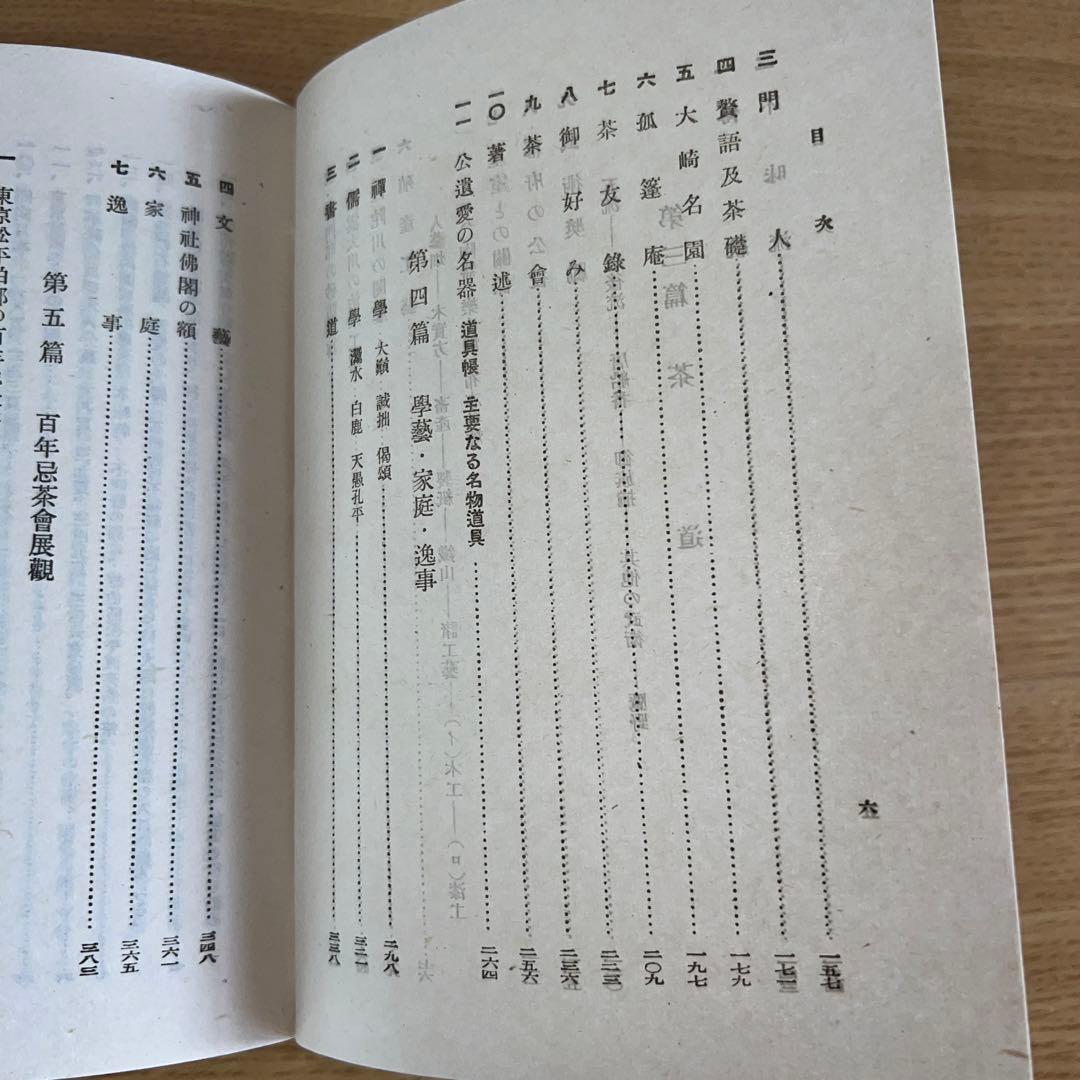 六
目次
三 門人 一五七
四 贅語及茶礎 一七一
五 大崎名園 一七九
六 孤篷庵 一九七
七 茶友錄 二〇九
八 御好み 二二三
九 茶會 二三六
一〇 著述 二五六
一一 公遺愛の名器 道具帳 主要なる名物道具 二六四
第四篇 學藝・家庭・逸事
一 禪學 大巓 誠拙 偈頌 二九八
二 儒學 白鹿 天愚孔平
三 書道 三三八
四 文藝 三四八
五 神社佛閣の額 三六一
六 家庭 三六五
七 逸事 三八三
第五篇 百年忌茶會展觀
一 東京松平伯邸の百年